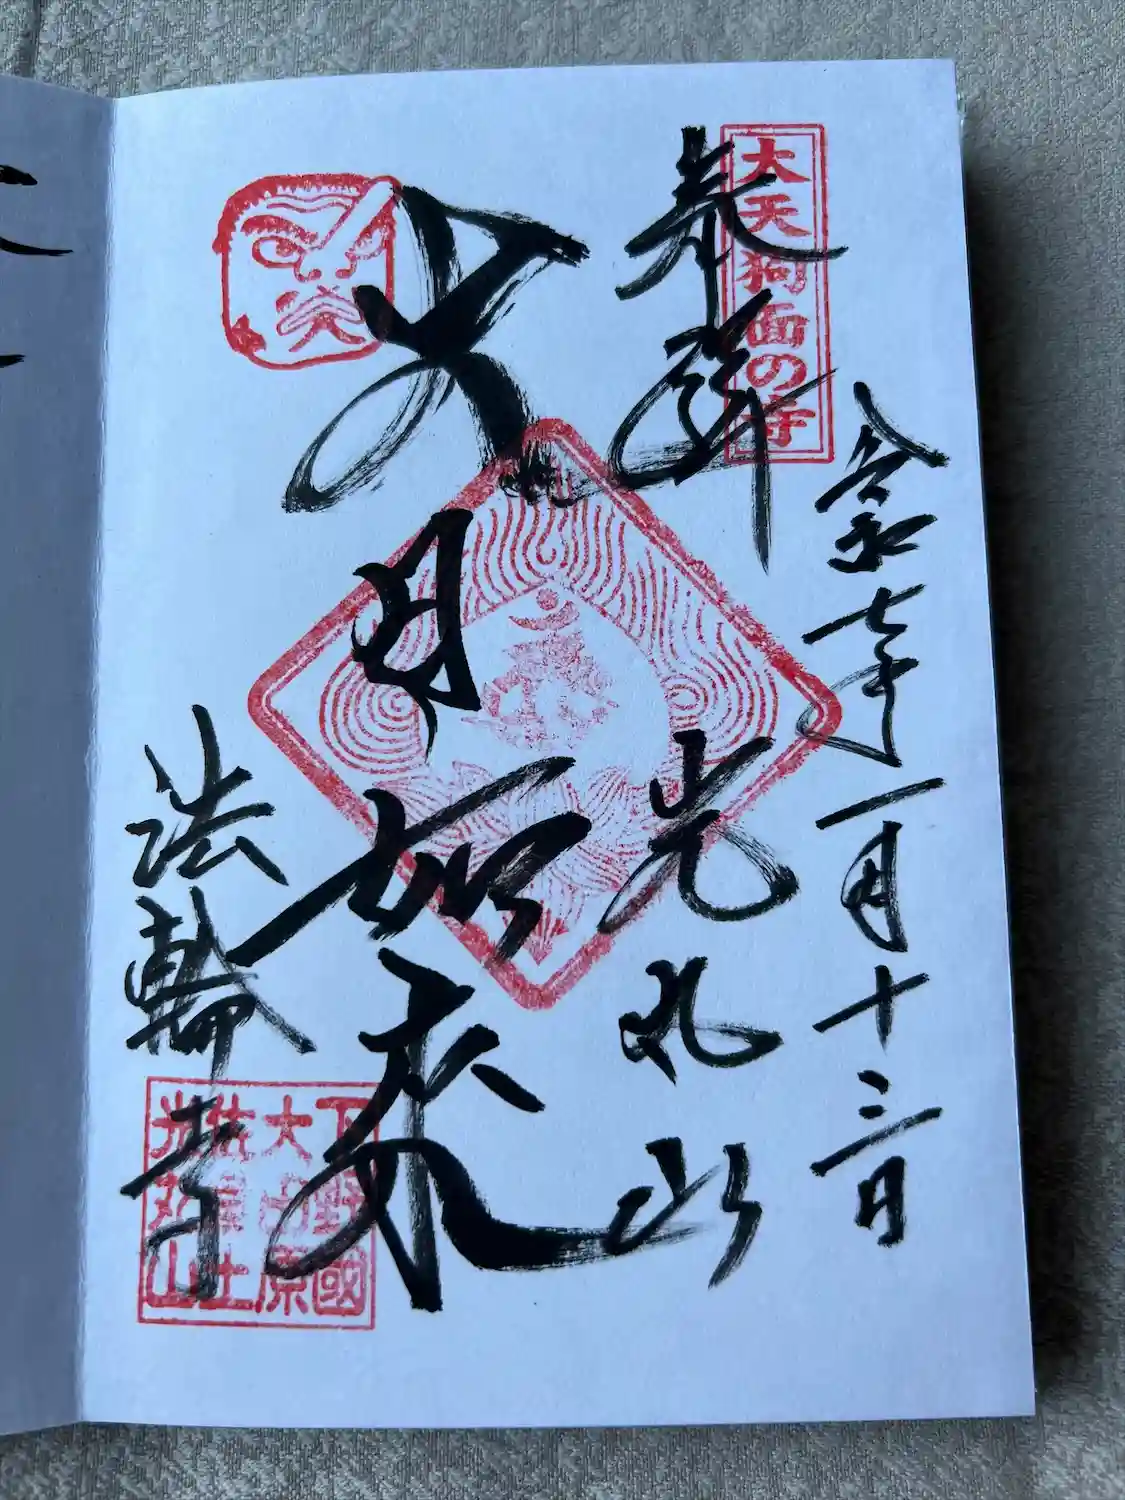 令和七年一月十三日
大天狗面の寺
奉拝
光丸山
大日如来
法輪寺
下野國
大田原
佐良土
光丸山